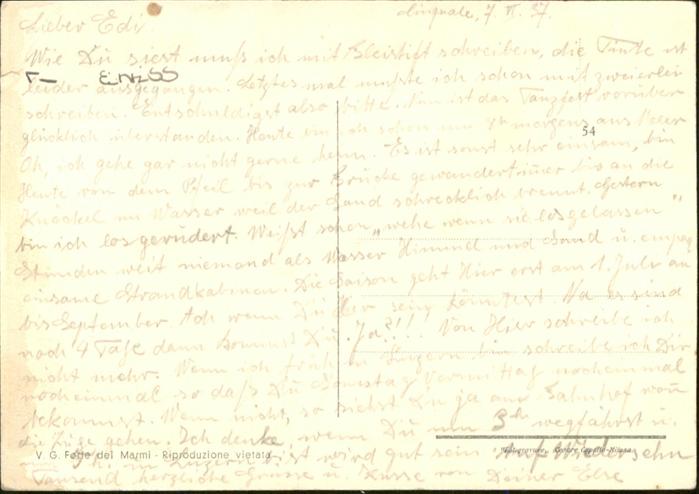 Cinquale, 7. VI. 57.
Lieber Edi.
Wie Du siest muß ich mit Bleistift schreiben, die Tinte ist
leider ausgegangen. Letztes mal mußte ich schon mit zweierlei
schreiben. Entschuldigst also bitte. Nun ist das Tanzfest vorüber
glücklich überstanden. Heute bin ich schon um morgens ans Meer
54
Oh, ich gehe gar nicht gerne heim. Es ist sonst sehr einsam, bin
Heute von dem Pfeil bis zur Brücke gewandert immer bis an die
Knöchel im Wasser weil der Sand schrecklich brennt. Gestern
bin ich losgerudert. Weißt schon „wehe wenn sie losgelassen"
Stunden weit niemand als Wasser Himmel und Sand u.
einsame Strandkabinen. Die Saison geht Hier erst am 1. Juli an
bis September. Ach wenn Du Hier sein könntest Na es sind
noch 4 Tage dann kommst Du. Ja?!!! Von Hier schreibe ich
nicht mehr. Wenn ich in Luzern bin schreibe ich Dir
nocheinmal so daß Du Samstag Vormittag nocheinmal
bekommst. Wenn nicht, so siehst Du ja am Bahnhof wann
die Züge gehen. Ich denke, wenn Du um 3h wegfährst u.
in Luzern bist wird gut sein. Auf Wiedersehn
V. G. Forte dei Marmi - Riproduzione vietata
Tausend herzliche Grüsse u. Küsse von Deiner Else